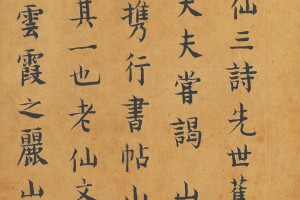 仙三詩先世舊
大夫嘗謁山
携行書帖山
其一也老仙文
雲霞之麗山